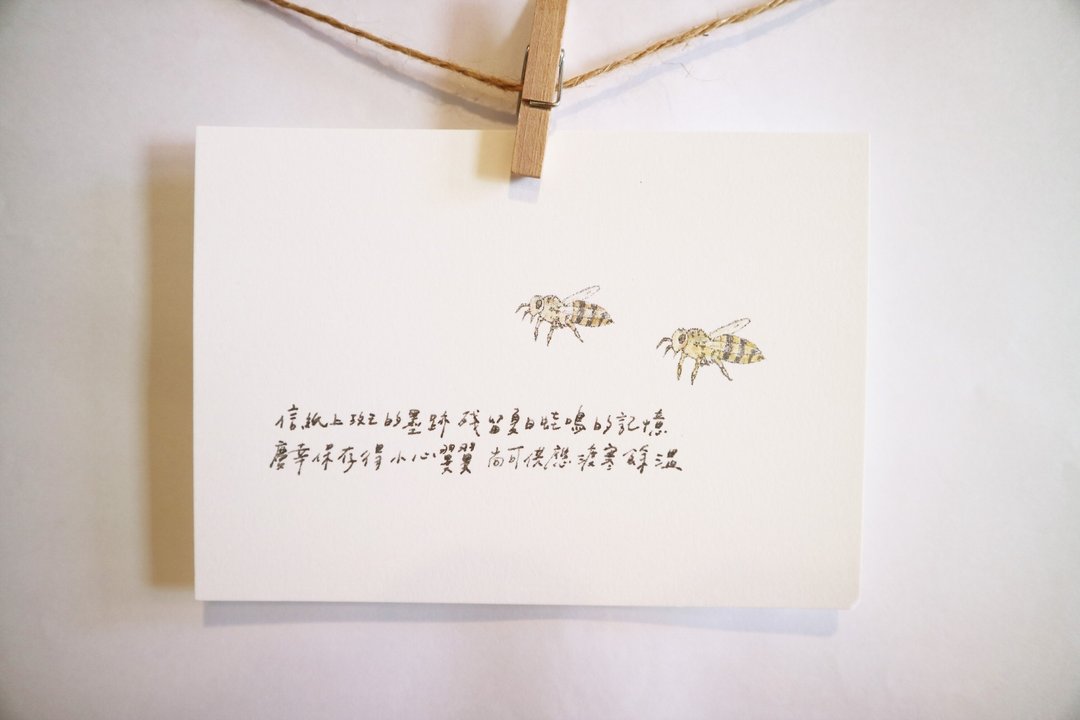 信紙上斑的墨跡 殘留夏日蛙鳴的記憶
慶幸保存得小心翼翼 尚可供應寒餘溫